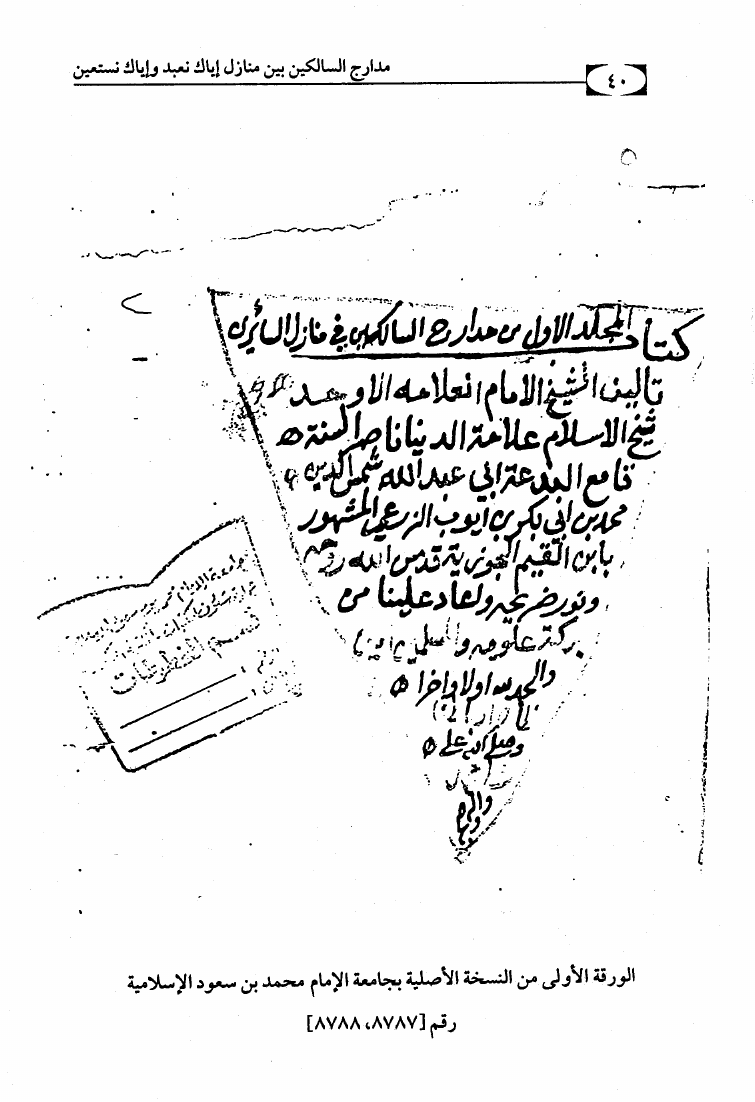 مدارج السالكين بين منازل إياك نعبد وإياك نستعين
٤٠
كتاب المجلد الاول من مدارج السالكين في منازل السائرين
تاليف الشيخ الامام العلامه الاوحد
شيخ الاسلام علامة الدنيا ناصر السنة
قامع البدعة ابي عبد الله شمس الدين
محمد بن ابي بكر بن ايوب الزرعي المشهور
بابن القيم الجوزية قدس الله روحه
ونور ضريحه ولعاد علينا من
بركة علومه والمسلمين
والحمد لله اولا واخرا
وصلى الله على
واله
قسم المخطوطات
الورقة الأولى من النسخة الأصلية بجامعة الإمام محمد بن سعود الإسلامية
رقم [٨٧٨٧، ٨٧٨٨]